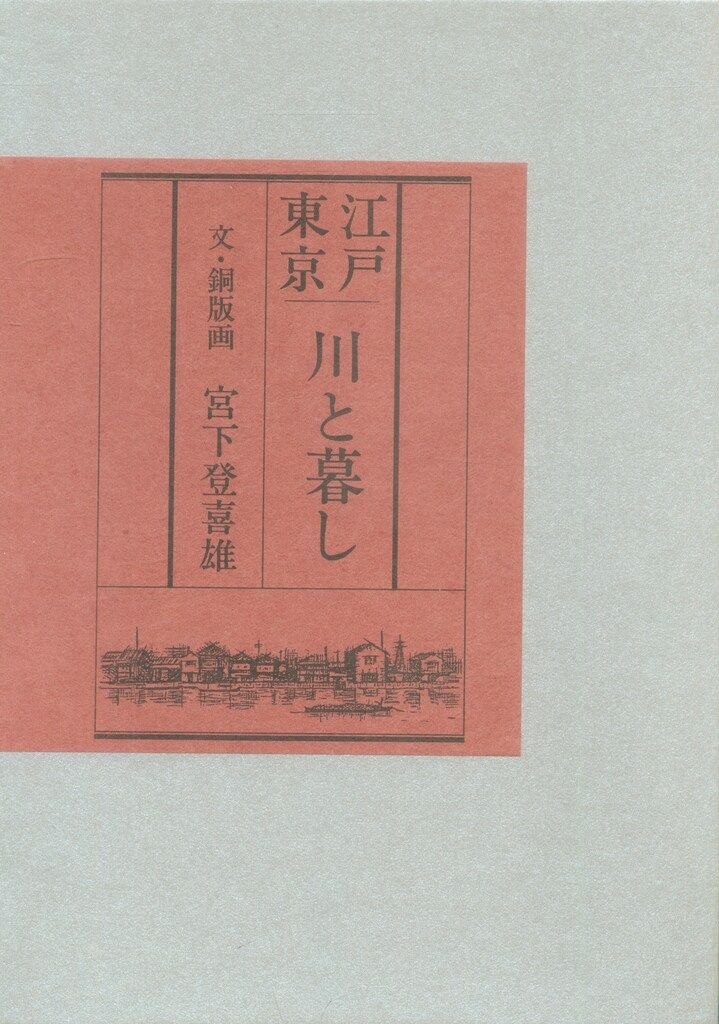 江戸
東京
川と暮し
文・銅版画　宮下登喜雄